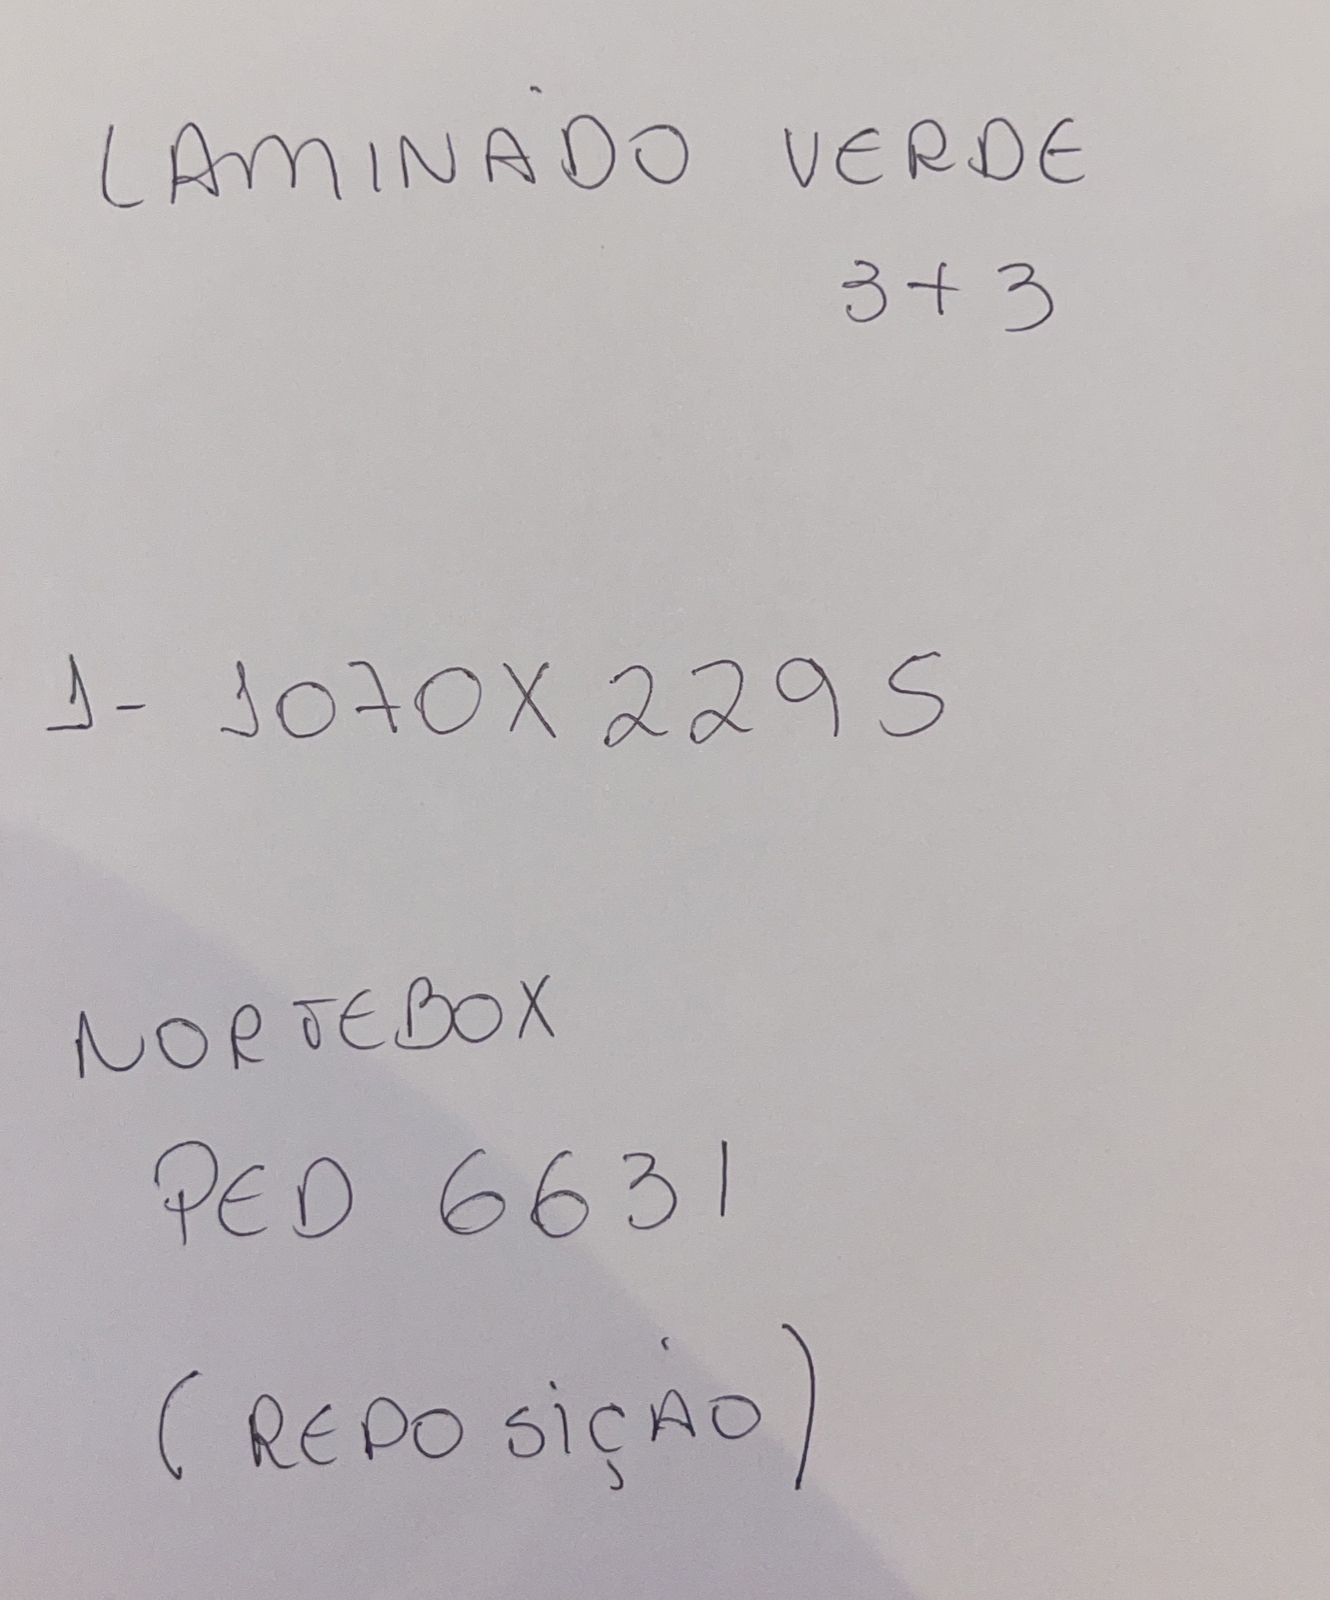 LAMINADO VERDE
3+3
1- 1070X2295
NORTEBOX
PED 6631
(REPOSIÇÃO)